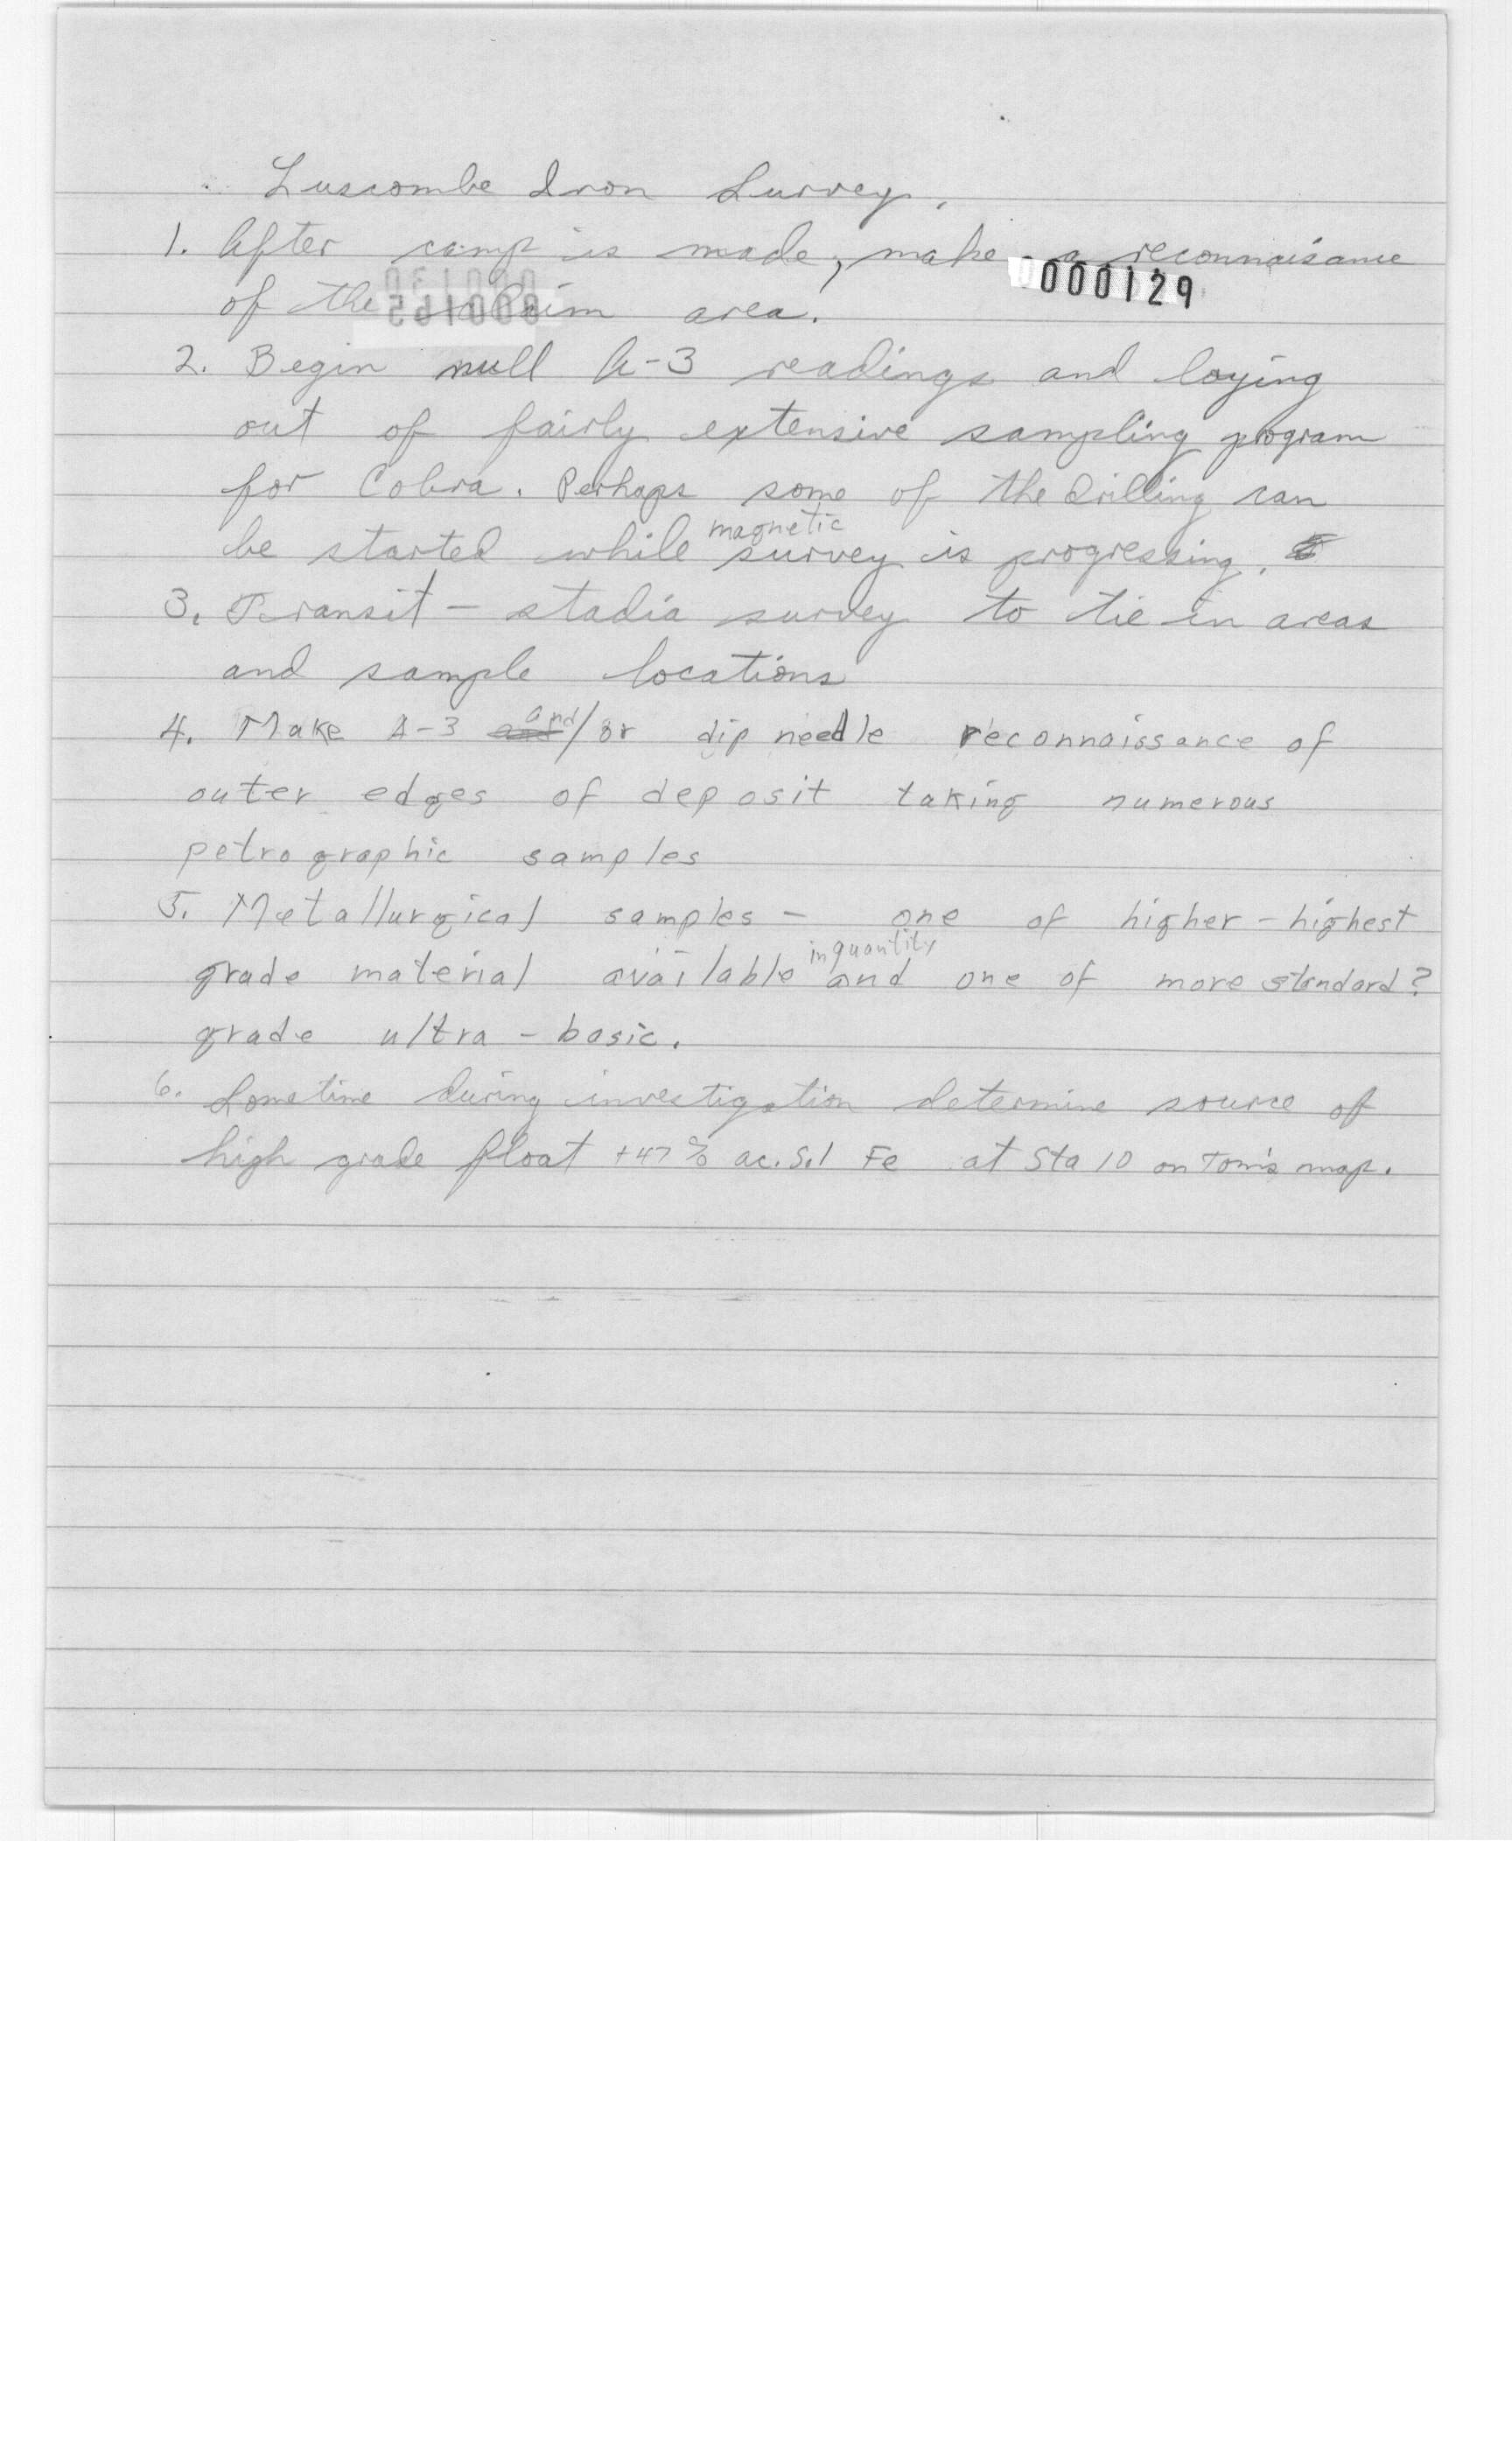 Luscombe Iron Survey.
1. After camp is made, make a reconnaisance
0000129
of the claim area.
2. Begin null A-3 readings and laying
out of fairly extensive sampling program
for Cobra. Perhaps some of the drilling can
magnetic
be started while survey is progressing.
3. Transit - stadia survey to tie in areas
and sample locations
4. Make A-3 and/or dip needle reconnaissance of
outer edges of deposit taking numerous
petrographic samples
5. Metallurgical samples - one of higher - highest
in quantity
grade material available and one of more standard?
grade ultra - basic.
6. Sometime during investigation determine source of
high grade float +47% ac. Sol Fe at Sta 10 on Tom's map.